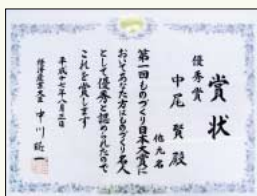 賞状
優秀賞
中尾賢殿
他九名
第一回ものづくり日本大賞に
おいてあなた方はものづくり名人
として優秀と認められたので
これを賞します
平成十七年八月三日
経済産業大臣 中川昭一